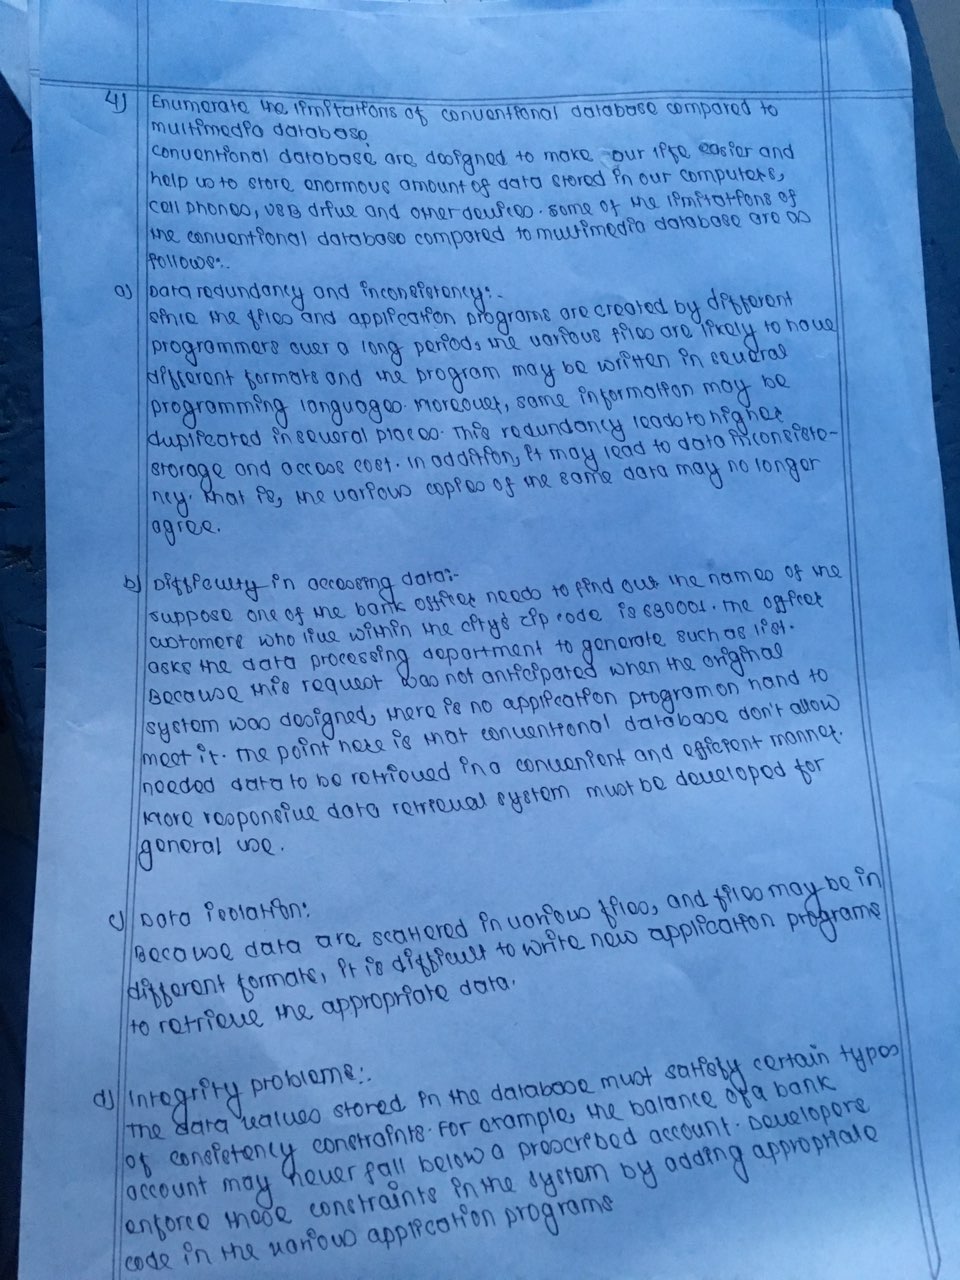 4) Enumerate the limitations of conventional database compared to
multimedia database.
conventional database are designed to make our life easier and
help us to store enormous amount of data stored in our computers,
cell phones, USB drive and other devices. some of the limitations of
the conventional database compared to multimedia database are as
follows:-
a) Data redundancy and inconsistency:-
since the files and application programs are created by different
programmers over a long period, the various files are likely to have
different formats and the program may be written in several
programming languages. Moreover, same information may be
duplicated in several places. This redundancy leads to higher
storage and access cost. In addition, it may lead to data inconsiste-
ncy. That is, the various copies of the same data may no longer
agree.
b) Difficulty in accessing data:-
suppose one of the bank officer needs to find out the names of the
customers who live within the city's zip code is 680001. The officer
asks the data processing department to generate such as list.
Because this request was not anticipated when the original
system was designed, there is no application program on hand to
meet it. The point here is that conventional database don't allow
needed data to be retrieved in a convenient and efficient manner.
More responsive data retrieval system must be developed for
general use.
c) Data isolation:
Because data are scattered in various files, and files may be in
different formats, it is difficult to write new application programs
to retrieve the appropriate data.
d) Integrity problems:-
The data values stored in the database must satisfy certain types
of consistency constraints. For example, the balance of a bank
account may never fall below a prescribed account. Developers
enforce these constraints in the system by adding appropriate
code in the various application programs